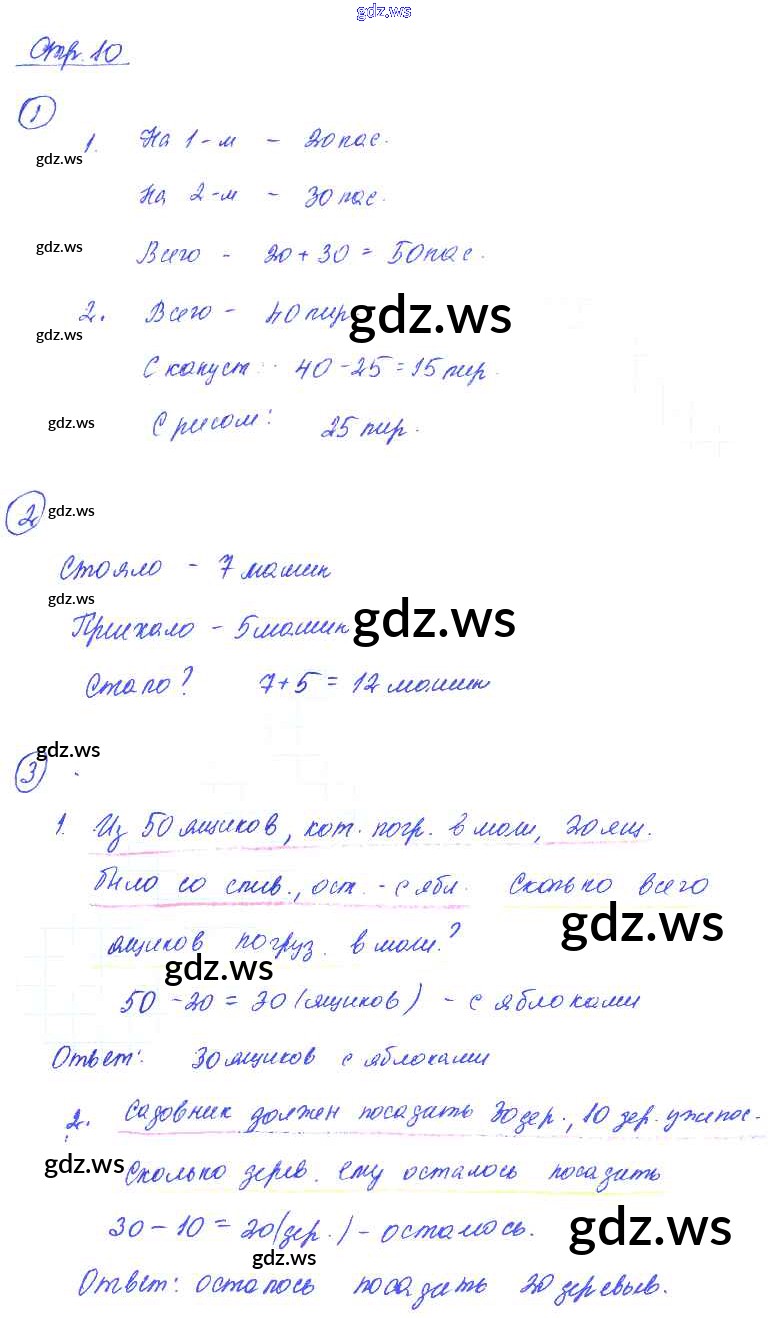 gdz.ws
Стр. 10
1
1. На 1-м - 20 пас.
gdz.ws
На 2-м - 30 пас.
gdz.ws
Всего - 20 + 30 = 50 пас.
2. Всего - 40 пир
gdz.ws
gdz.ws
С капуст: 40 - 25 = 15 пир.
gdz.ws
С рисом: 25 пир.
2
gdz.ws
Стояло - 7 машин
gdz.ws
Приехало - 5 машин
gdz.ws
Стало? 7 + 5 = 12 машин
gdz.ws
3
1. Из 50 ящиков, кот. погр. в маш, 20 ящ.
было со слив., ост. - с ябл. Сколько всего
gdz.ws
ящиков погруз. в маш.?
gdz.ws
50 - 20 = 30 (ящиков) - с яблоками
Ответ: 30 ящиков с яблоками
2. Садовник должен посадить 30 дер., 10 дер. уже пос.
gdz.ws
Сколько дерев. ему осталось посадить
30 - 10 = 20 (дер.) - осталось.
gdz.ws
gdz.ws
Ответ: осталось посадить 20 деревьев.